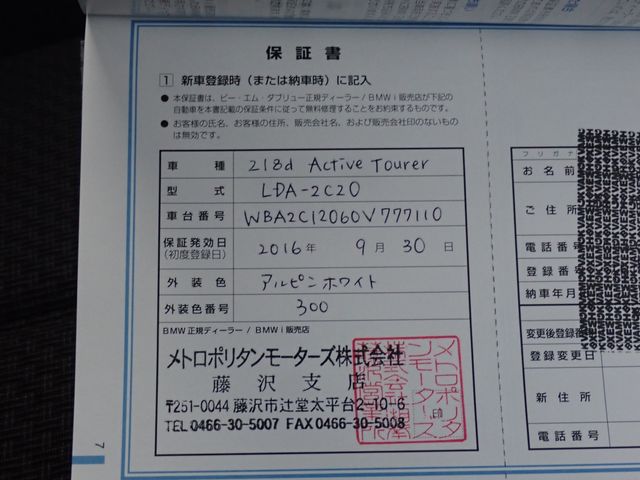 保証書
1 新車登録時（または納車時）に記入
● 本保証書は、ビー・エム・ダブリュー正規ディーラー / BMW i 販売店が下記の
自動車を本書記載の保証条件に従って無料修理することをお約束するものです。
● お客様の氏名、お客様の住所、販売会社名、および販売会社印のないもの
は無効です。
車種 218d Active Tourer
型式 LDA-2C20
車台番号 WBA2C12060V777110
保証発効日 2016年 9月 30日
(初度登録日)
外装色 アルピンホワイト
外装色番号 300
BMW正規ディーラー / BMW i 販売店
メトロポリタンモーターズ株式会社
藤沢支店
〒251-0044 藤沢市辻堂太平台2-10-6
TEL 0466-30-5007 FAX 0466-30-5008
メトロポリタ
ンモータース
印
7
フリガナ
お名前
ご住所
電話番号
登録番号
納車年月
変更後登録番
登録変更日
新住所
電話番号